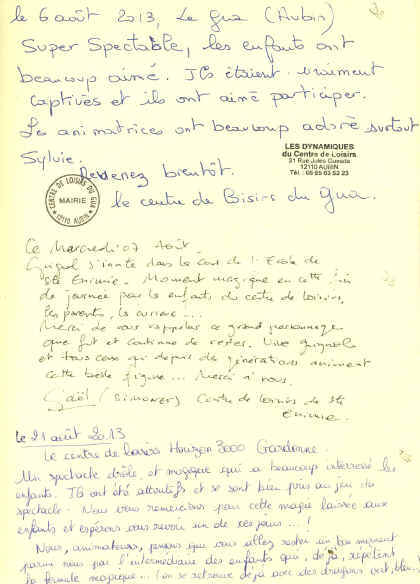 le 6 août 2013, Le Gua (Aubin)
Super Spectable, les enfants ont
beaucoup aimé. Ils étaient vraiment
captivés et ils ont aimé participer.
Les animatrices ont beaucoup adoré surtout
Sylvie.
LES DYNAMIQUES
du Centre de Loisirs
31 Rue Jules Guesde
12110 AUBIN
Tél. : 05 65 63 52 23
Revenez bientôt.
CENTRE DE LOISIRS DU GUA
MAIRIE
12110 AUBIN
le centre de Loisirs du Gua.
Ce Mercredi 07 Août.
Guignol s'invite dans la Cour de l'Ecole de
Ste Enimie. Moment magique en cette fin
de journée pour les enfants du centre de loisirs,
les parents, les curieux ...
Merci de nous rappeler ce grand personnage
que fut et continue de rester. Vive guignol
et tous ceux qui depuis des générations animent
cette belle figure ... Merci à vous.
Gaël (Simoner) Centre de loisirs de Ste
Enimie.
le 21 août 2013
Le centre de loisirs 3000 Gardonne.
Un spectacle drôle, et magique qui a beaucoup intéressé les
enfants. Ils ont été attentifs et se sont bien pris au jeu du
spectacle. Nous vous remercions pour cette magie laissée aux
enfants et espérons vous revoir un de ces jours ... !
Nous, animateurs, pensons que vous allez rester un bon moment
parmi nous par l'intermédiaire des enfants qui, déjà, répètent
la formule magique ... ! on se retrouve déjà avec des dragons vert, bleu